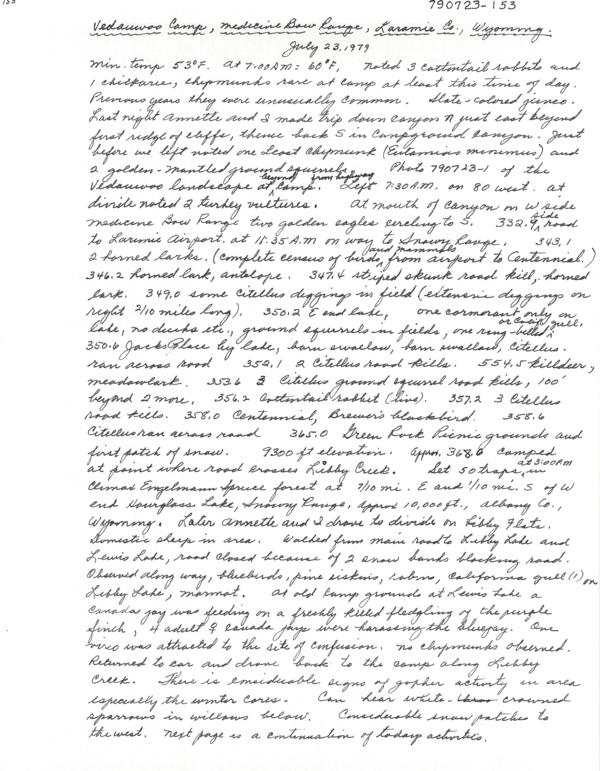 790723-153
Vedauwoo Camp, Medicine Bow Range, Laramie Co., Wyoming.
July 23, 1979
Min. temp 53°F. At 7:00 AM = 60°F. Noted 3 cottontail rabbits and
1 chickaree, chipmunks rare at camp at least this time of day.
Previous years they were unusually common. Slate-colored junco.
Last night Annette and I made trip down canyon N just east beyond
first ridge of cliffs, thence back S in campground canyon. Just
before we left noted one Least Chipmunk (Eutamias minimus) and
2 golden-mantled ground squirrels. Photo 790723-1 of the
Vedauwoo landscape at beyond camp. from highway Left 7:30 A.M. on 80 west. At
divide noted 2 turkey vultures. At mouth of canyon on W side
Medicine Bow Range two golden eagles circling to S. 332.9 side road
to Laramie Airport, at 15:35 A.M on way to Snowy Range. 343.1
2 horned larks. (complete census of birds and mammals from airport to Centennial.)
346.2 horned lark, antelope. 347.4 striped skunk road kill, horned
lark. 349.0 some Citellus diggings in field (extensive diggings on
right 2/10 miles long). 350.2 E end lake, one cormorant only on
lake, no ducks etc., ground squirrels in fields, one ring-billed or Calif. gull.
350.6 Jacks Place by lake, barn swallow, barn swallow, Citellus
ran across road 352.1 2 Citellus road kills. 554.5 killdeer,
meadowlark. 353.6 3 Citellus ground squirrel road kills, 100'
beyond 2 more, 356.2 Cottontail rabbit (live). 357.2 3 Citellus
road kills. 358.0 Centennial, Brewer's blackbird. 358.6
Citellus ran across road 365.0 Green Rock Picnic grounds and
first patch of snow. 9300 ft elevation. Approx. 368.6 camped
at point where road crosses Libby Creek. Set 50 traps, at 3:00 P.M in
Climax Engelmann Spruce forest at 7/10 mi. E and 1/10 mi. S of W
end Hourglass Lake, Snowy Range, approx 10,000 ft., Albany Co.,
Wyoming. Later Annette and I drove to divide on Libby Flats.
Domestic sheep in area. Walked from main road to Libby Lake and
Lewis Lake, road closed because of 2 snow banks blocking road.
Observed along way, bluebirds, pine siskins, robins, California gull (1) on
Libby Lake, marmot. At old camp grounds at Lewis Lake a
Canada jay was feeding on a freshly killed fledgling of the purple
finch, 4 adult & Canada jays were harassing the bluejay. One
vireo was attracted to the site of confusion. No chipmunks observed.
Returned to car and drove back to the camp along Libby
Creek. There is considerable signs of gopher activity in area
especially the winter cores. Can hear white-crowned
sparrows in willows below. Considerable snow patches to
the west. Next page is a continuation of todays activities.